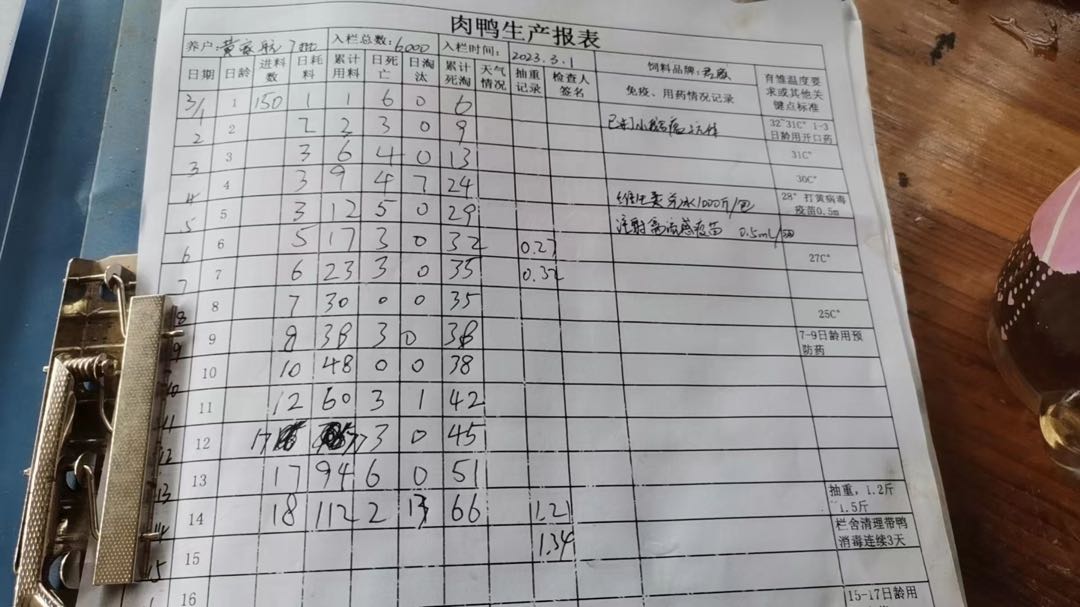 肉鸭生产报表
养户: 入栏总数: 6000 入栏时间: 2023.3.1 饲料品牌: 育雏温度要求或其他关键点标准
日期 日龄 进料数 日耗料 累计用料 日死亡 日淘汰 累计死淘 天气情况 抽重记录 检查人签名 免疫、用药情况记录
3/1 1 150 1 1 6 0 6
2 2 2 2 3 0 9 32~31C° 1-3日龄用开口药
3 3 3 6 4 0 13 31C°
4 4 3 9 4 7 24 30C°
5 5 3 12 5 0 29 维生素兑水1000斤/包 28° 打黄病毒疫苗0.5m
6 6 5 17 3 0 32 0.27 注射禽流感疫苗 0.5mL/羽
7 7 6 23 3 0 35 0.32 27C°
8 8 7 30 0 0 35
9 9 8 38 3 0 38 25C°
10 10 10 48 0 0 38 7-9日龄用预防药
11 11 12 60 3 1 42
12 12 17 77 3 0 45
13 13 17 94 6 0 51
14 14 18 112 2 13 66 1.21 抽重,1.2斤~1.5斤
15 15 1.34 栏舍清理带鸭消毒连续3天
16 15-17日龄用